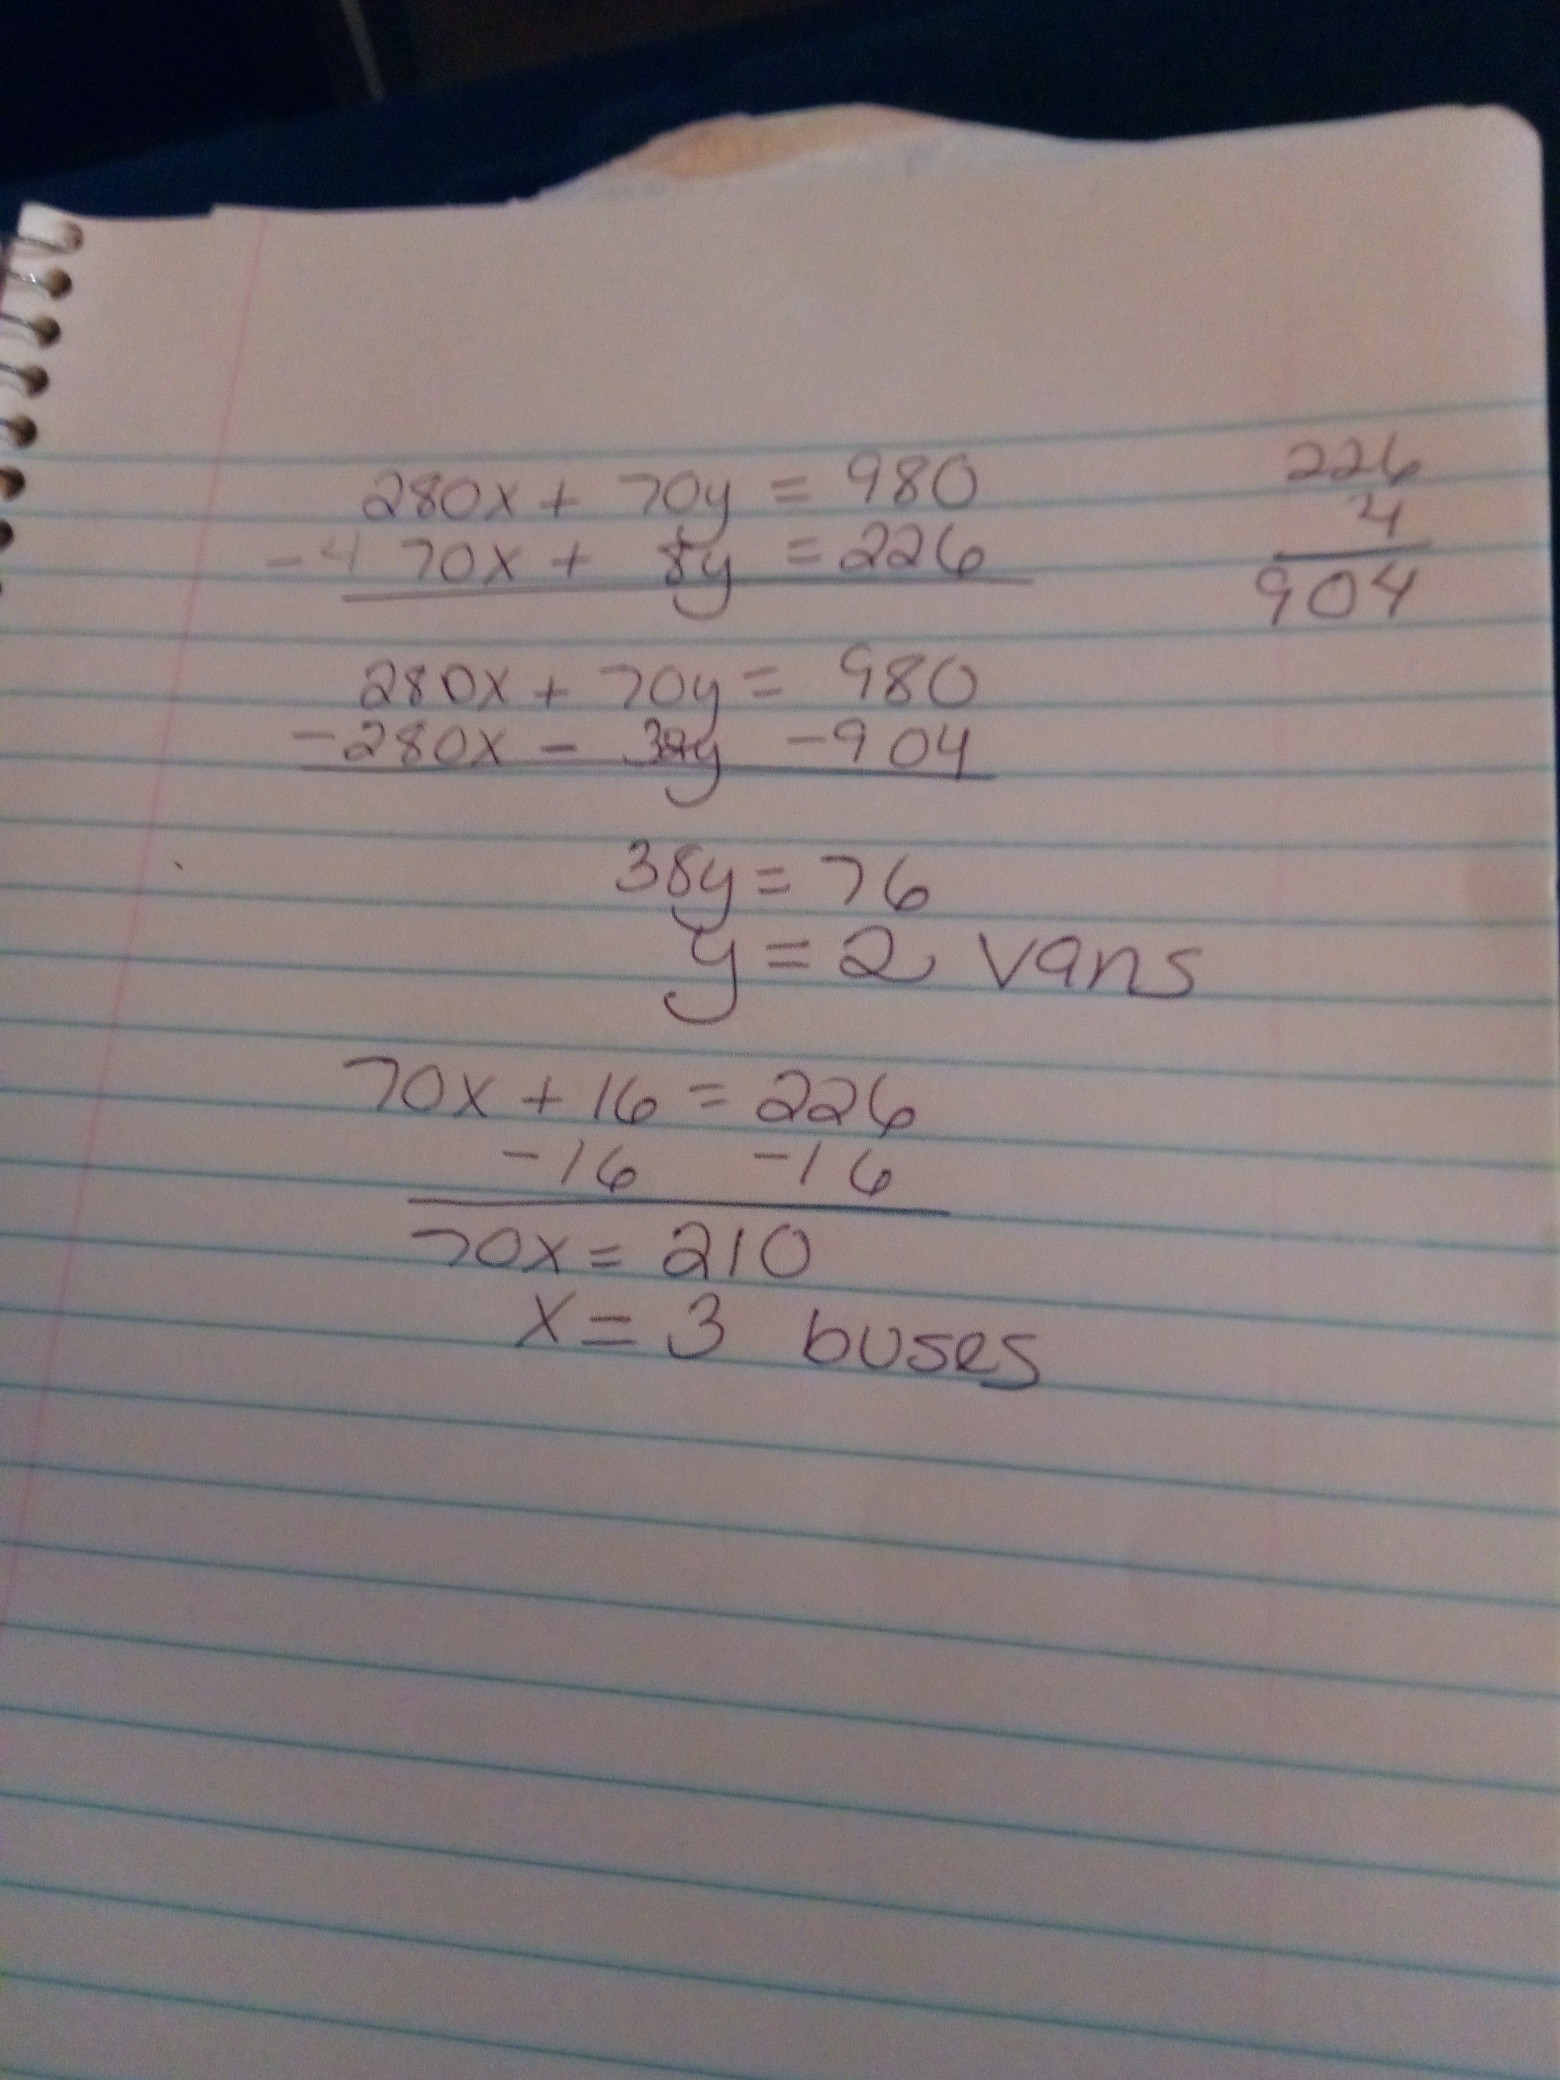 280x + 70y = 980
-4 70x + 8y = 226
226
4
904
280x + 70y = 980
-280x - 32y -904
38y = 76
y = 2 vans
70x + 16 = 226
-16 -16
70x = 210
x = 3 buses